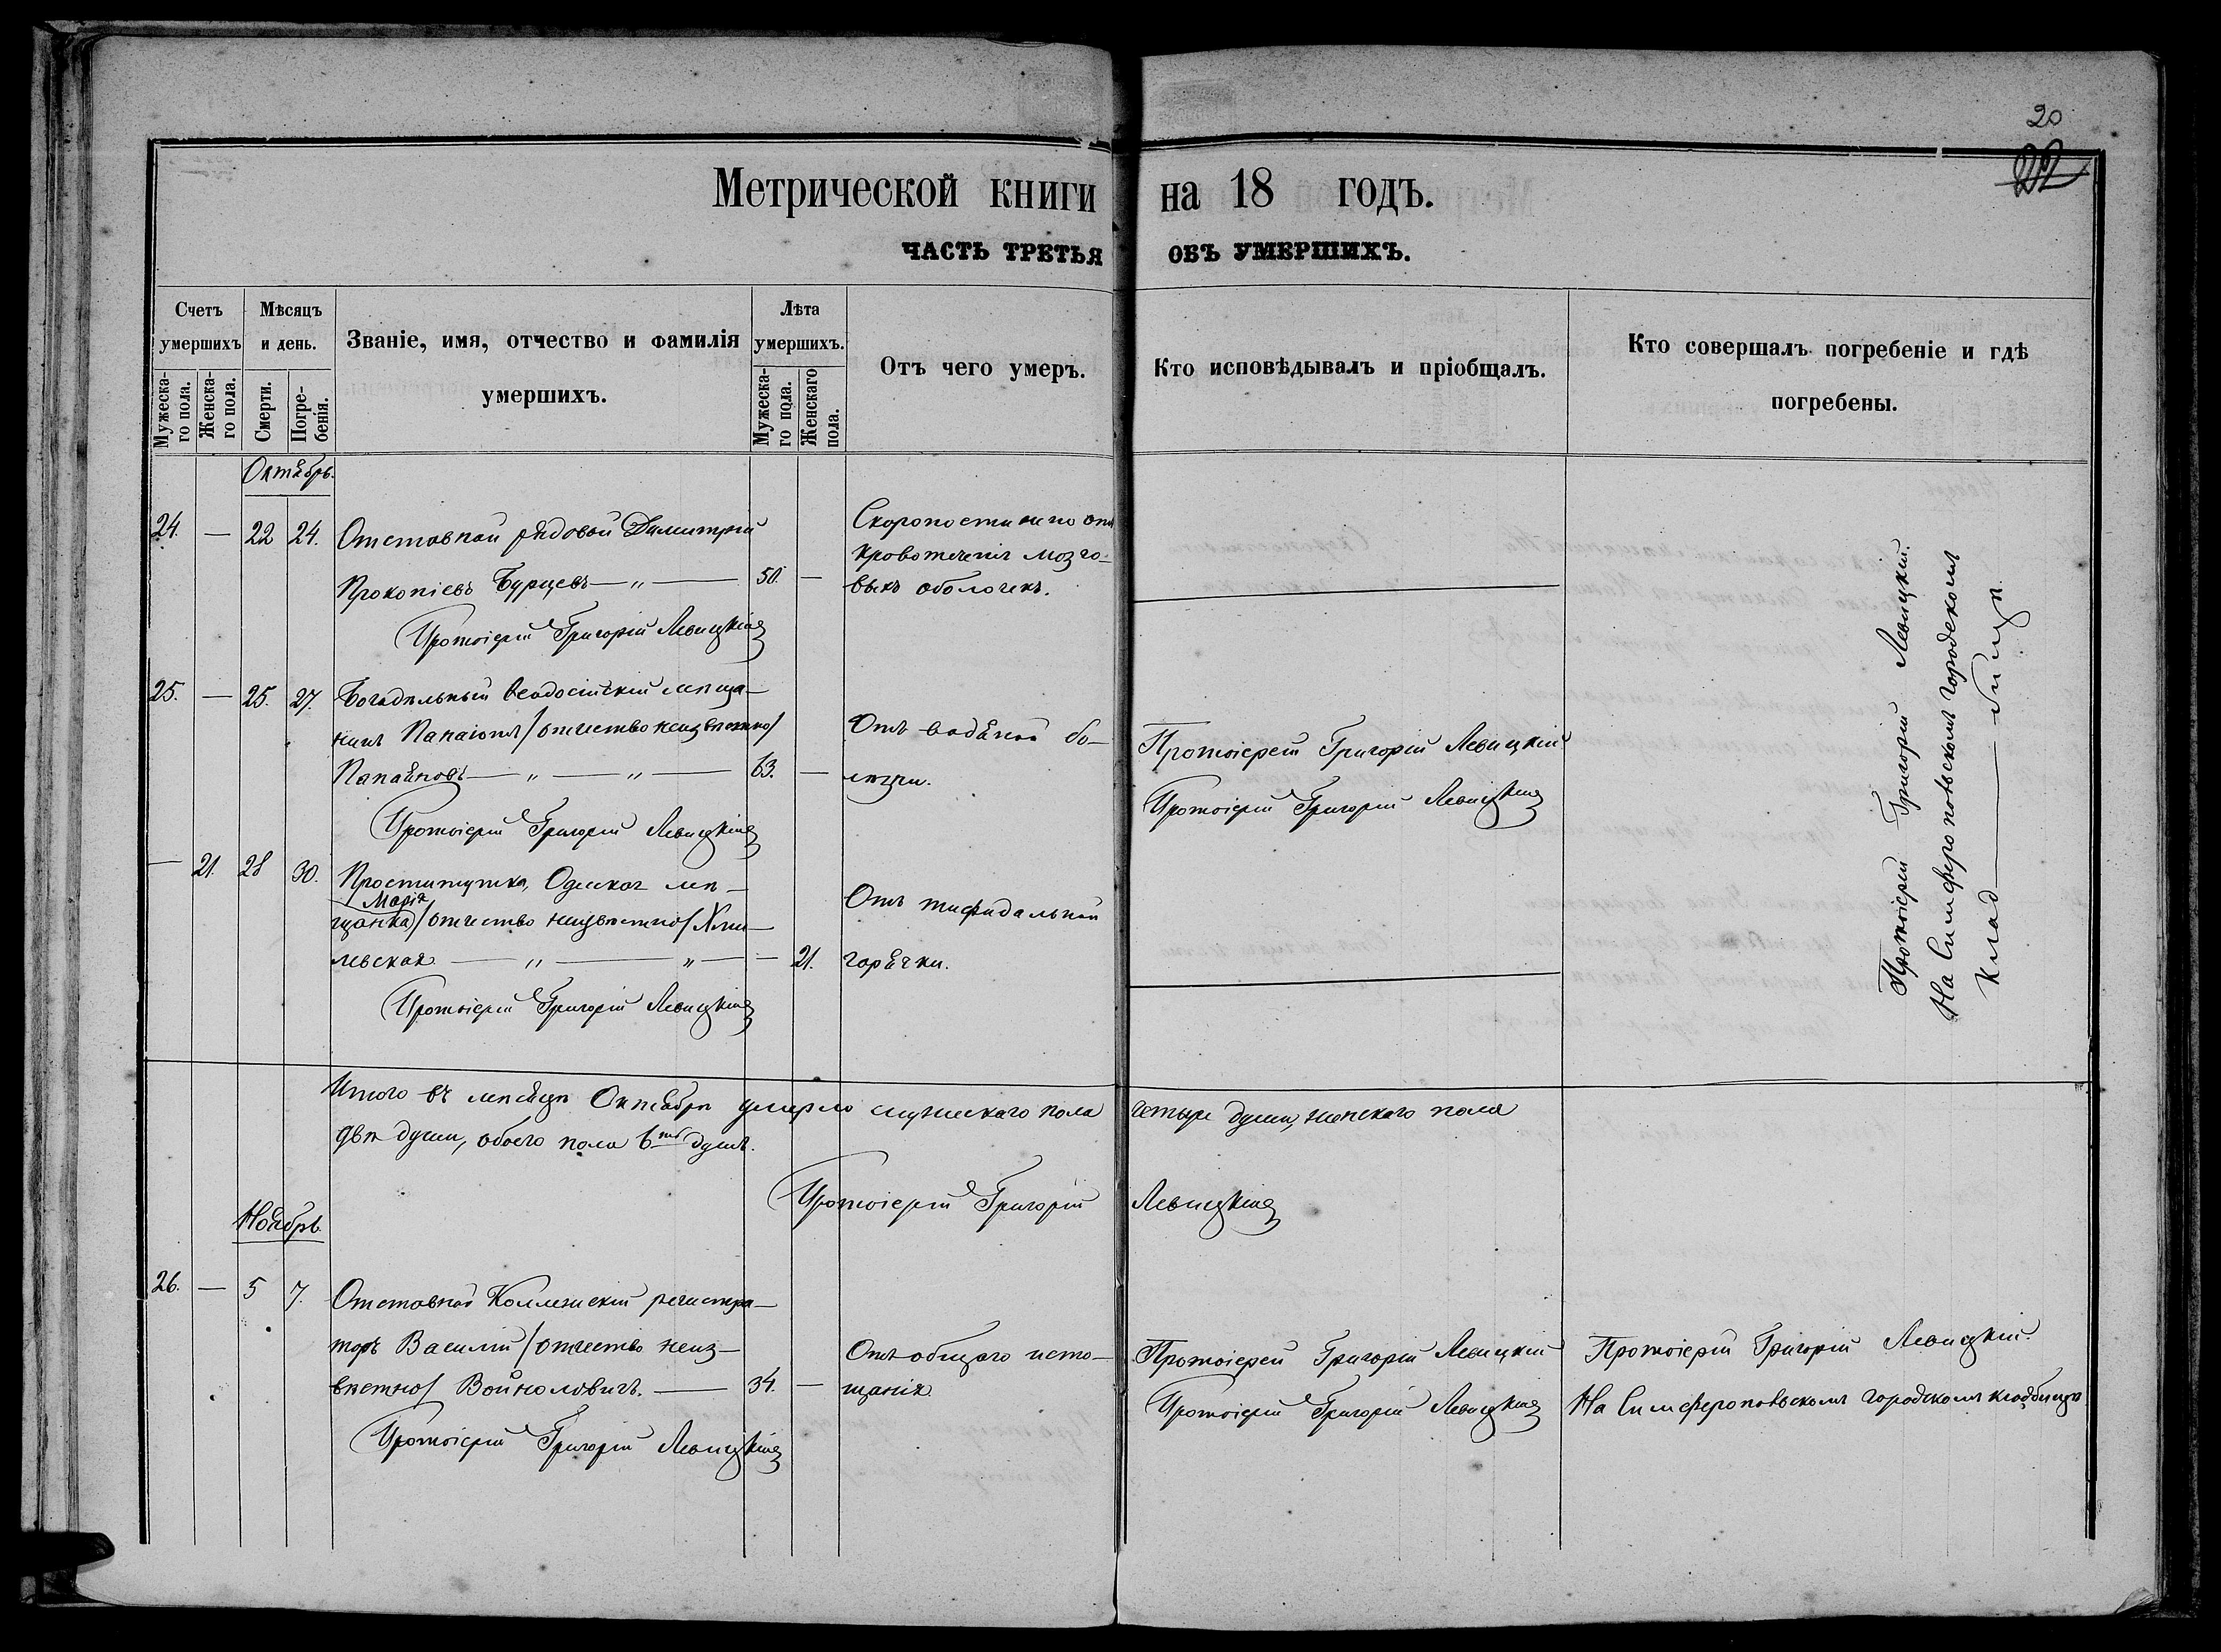 20
22
Метрической книги на 18 годъ.
ЧАСТЬ ТРЕТЬЯ ОБЪ УМЕРШИХЪ.
Счетъ умершихъ
Мѣсяцъ и день.
Званіе, имя, отчество и фамилія умершихъ.
Лѣта умершихъ.
Отъ чего умеръ.
Кто исповѣдывалъ и пріобщалъ.
Кто совершалъ погребеніе и гдѣ погребены.
Мужеска-го пола.
Женска-го пола.
Смерти.
Погре-бенія.
Мужеска-го пола.
Женскаго пола.
Октябрь.
24. — 22 24. Отставной рядовой Димитрій
Прокопіевъ Бурцевъ — „ — 50. —
Скоропостижно отъ
кровотеченія мозго-
выхъ оболочекъ.
Протоіерей Григорій Левицкій
25. — 25. 27. Богадѣльный Ѳеодосійскій мѣща-
нинъ Папаіотъ /отчество неизвѣстно/
Папаяновъ — „ — „ — 63. —
Отъ водяной бо-
лѣзни.
Протоіерей Григорій Левицкій
Протоіерей Григорій Левицкій
Протоіерей Григорій Левицкій
— 21. 28 30. Проститутка, Одеская мѣ-
Марія
щанка /отчество неизвѣстно/ Хми-
левская — „ — „ — — 21.
Отъ тифидальной
горячки.
Протоіерей Григорій Левицкій
Протоіерей Григорій Левицкій.
На Симферопольскомъ городскомъ
клад — бищѣ
Итого въ мѣсяцѣ Октябрѣ умерло мужескаго пола четыре души, женскаго пола
двѣ души, обоего пола 6ть душъ.
Протоіерей Григорій Левицкій
Ноябрь
26. — 5 7. Отставной Коллежскій регистра-
торъ Василій /отчество неиз-
вѣстно/ Войноловичъ. — 34. —
Отъ общаго исто-
щанія
Протоіерей Григорій Левицкій
Протоіерей Григорій Левицкій
Протоіерей Григорій Левицкій.
На Симферопольскомъ городскомъ кладбищѣ
Протоіерей Григорій Левицкій